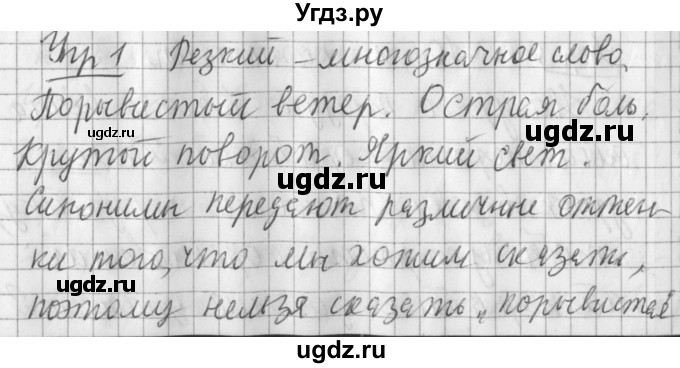 Угдз.ру
Упр 1 Резкий – многозначное слово.
Порывистый ветер. Острая боль.
ugdz.ru ugdz.ru
Крутой поворот. Яркий свет.
ugdz.ru
Синонимы передают различные оттен-
ки того, что мы хотим сказать,
ugdz.ru ugdz.ru
поэтому нельзя сказать „порывистая
ugdz.ru